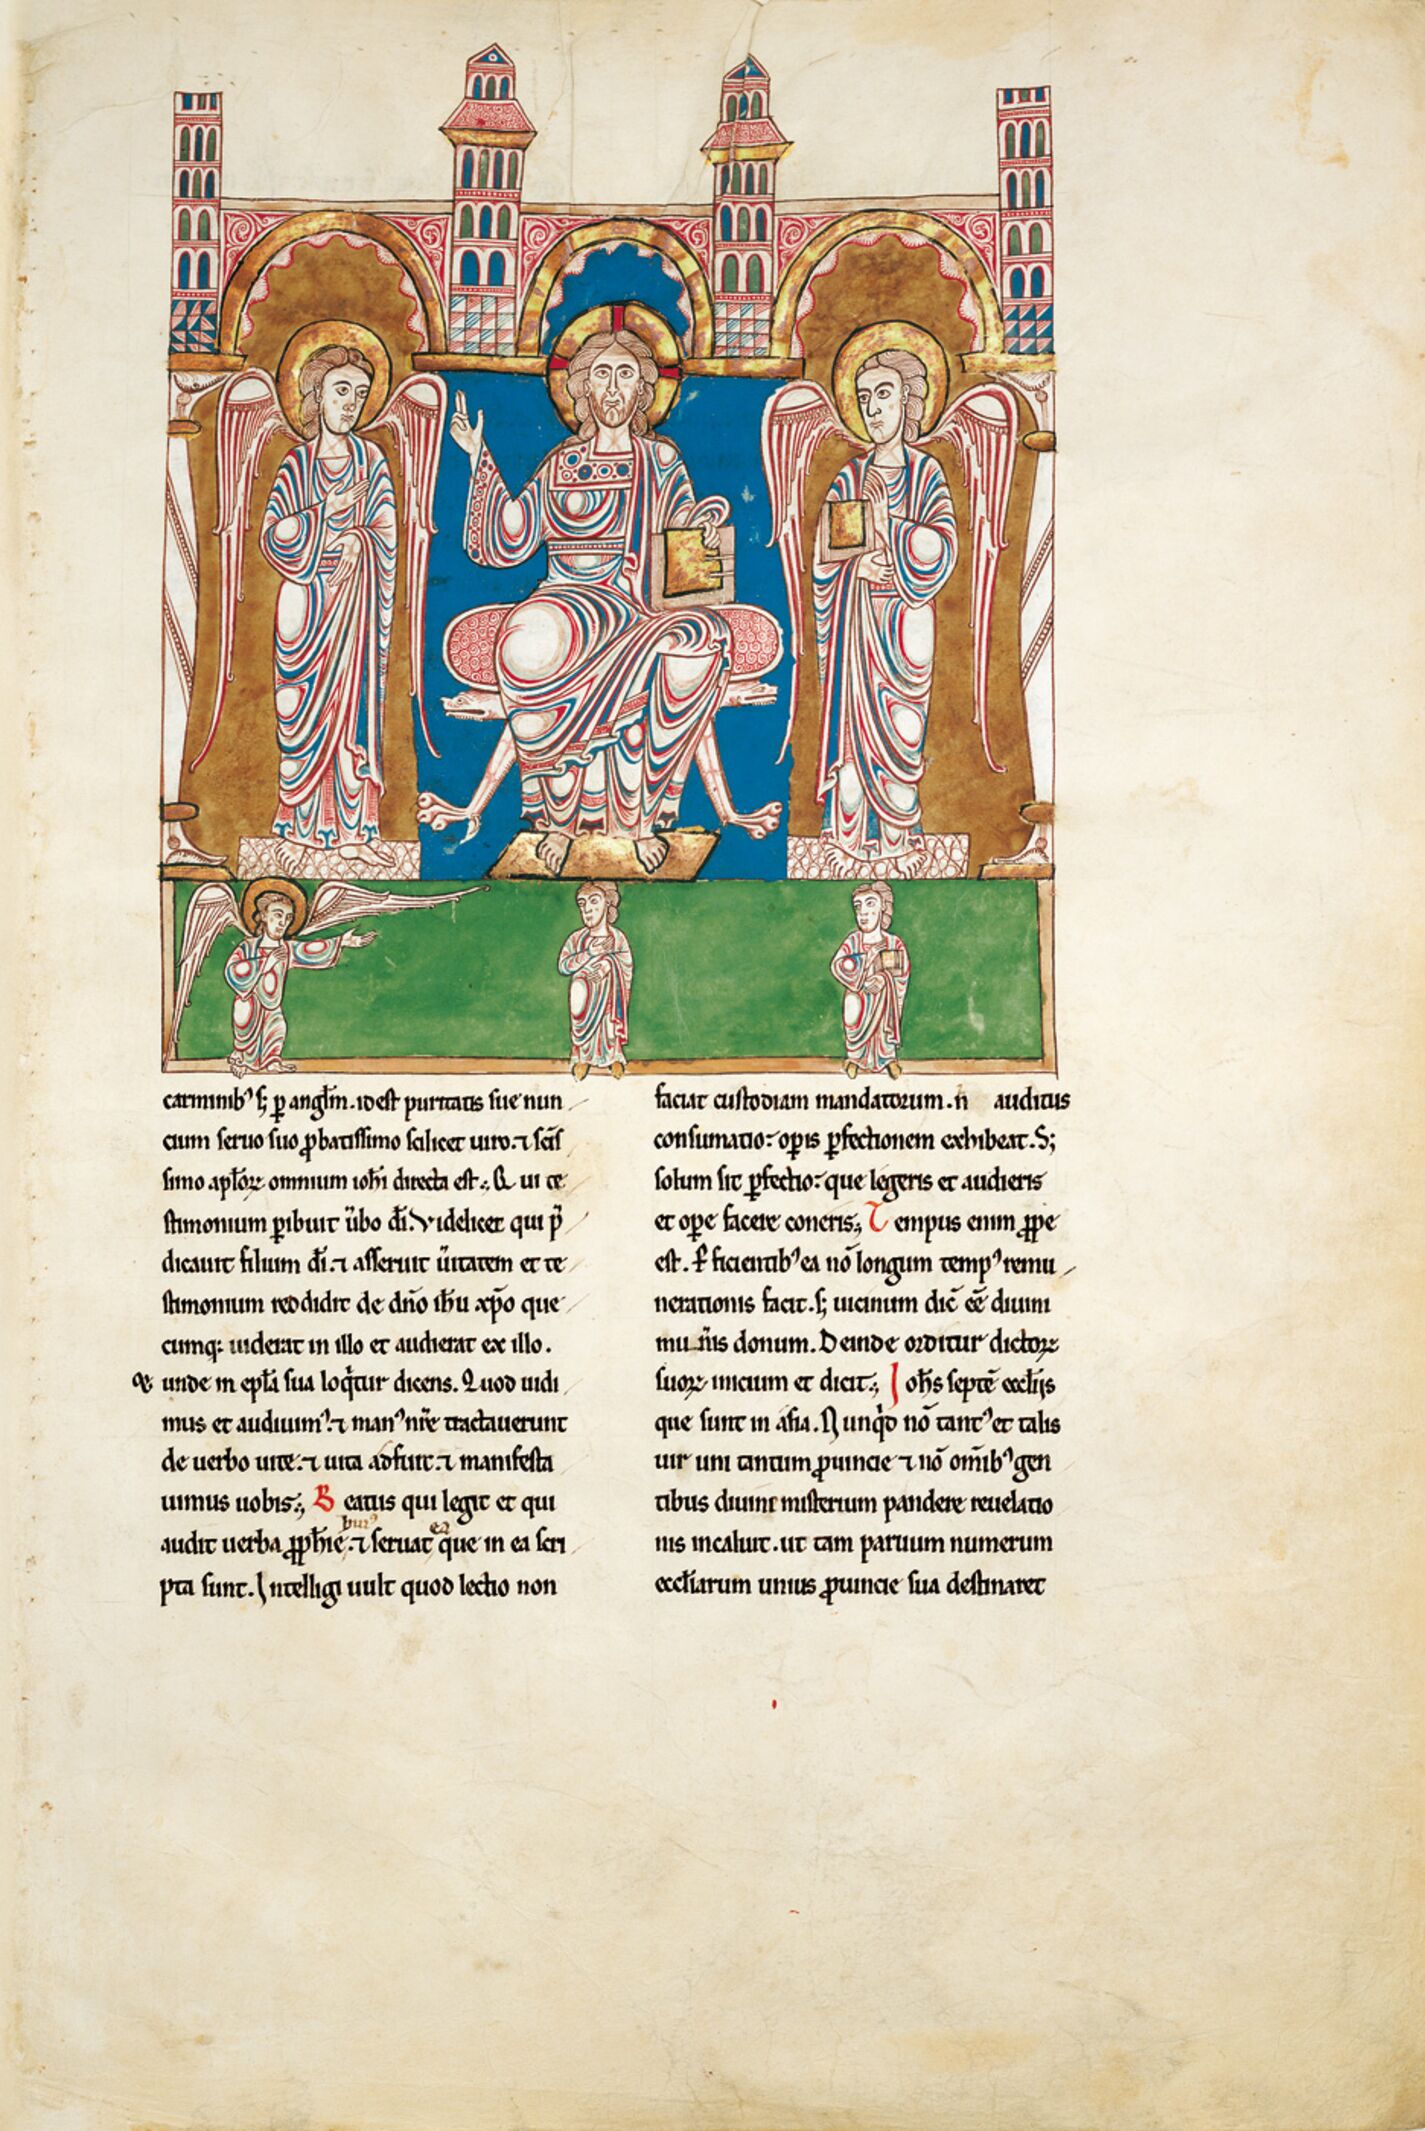 carminib᾽ ꝫ p̲ angl̅m. id est puritatis sue nun
cium seruo suo ꝓbatissimo scilicet uiro. ⁊ scīs
simo apl̅oꝝ omnium ioh̅i directa est. Qui te
stimonium ꝑibuit ūbo dı̅. Videlicet qui p̄
dicauit filium dı̅. ⁊ asseruit ūitatem et te
stimonium reddidit de dn̅o ih̅u xp̅o que
cumq: uiderat in illo et audierat ex illo.
unde in epl̅a sua loq̇tur dicens. Quod uidi
mus et audiuim᾽. ⁊ man᾽ nr̅e tractauerunt
de uerbo uite. ⁊ uita adfuit. ⁊ manifesta
uimus uobis; Beatus qui legit et qui
audit uerba ꝓph̅ie hui᾽. ⁊ seruat ea que in ea scri
pta sunt. Intelligi uult quod lectio non
faciat custodiam mandatorum. n̅ auditus
consumatio: oꝑis ꝑfectionem exhibeat. S;
solum sit ꝑfectio: que legeris et audieris
et oꝑe facere coneris; Tempus enim ꝓpe
est. ꝑficientib᾽ ea nō longum temp᾽ remu
nerationis facit. ꝫ uicinum dic̅ ee̅ diuini
muīis donum. Deinde orditur dictoꝝ
suoꝝ inicium et dicit; Joh̅s septē eccl̅ijs
que sunt in asia. Nunq̇d nō tant᾽ et talis
uir uni tantum ꝓuincie ⁊ nō om̅ib᾽ gen
tibus diuini misterium pandere reuelatio
nis incaluit. ut tam paruum numerum
eccl̅iarum unius ꝓuincie sua destinaret